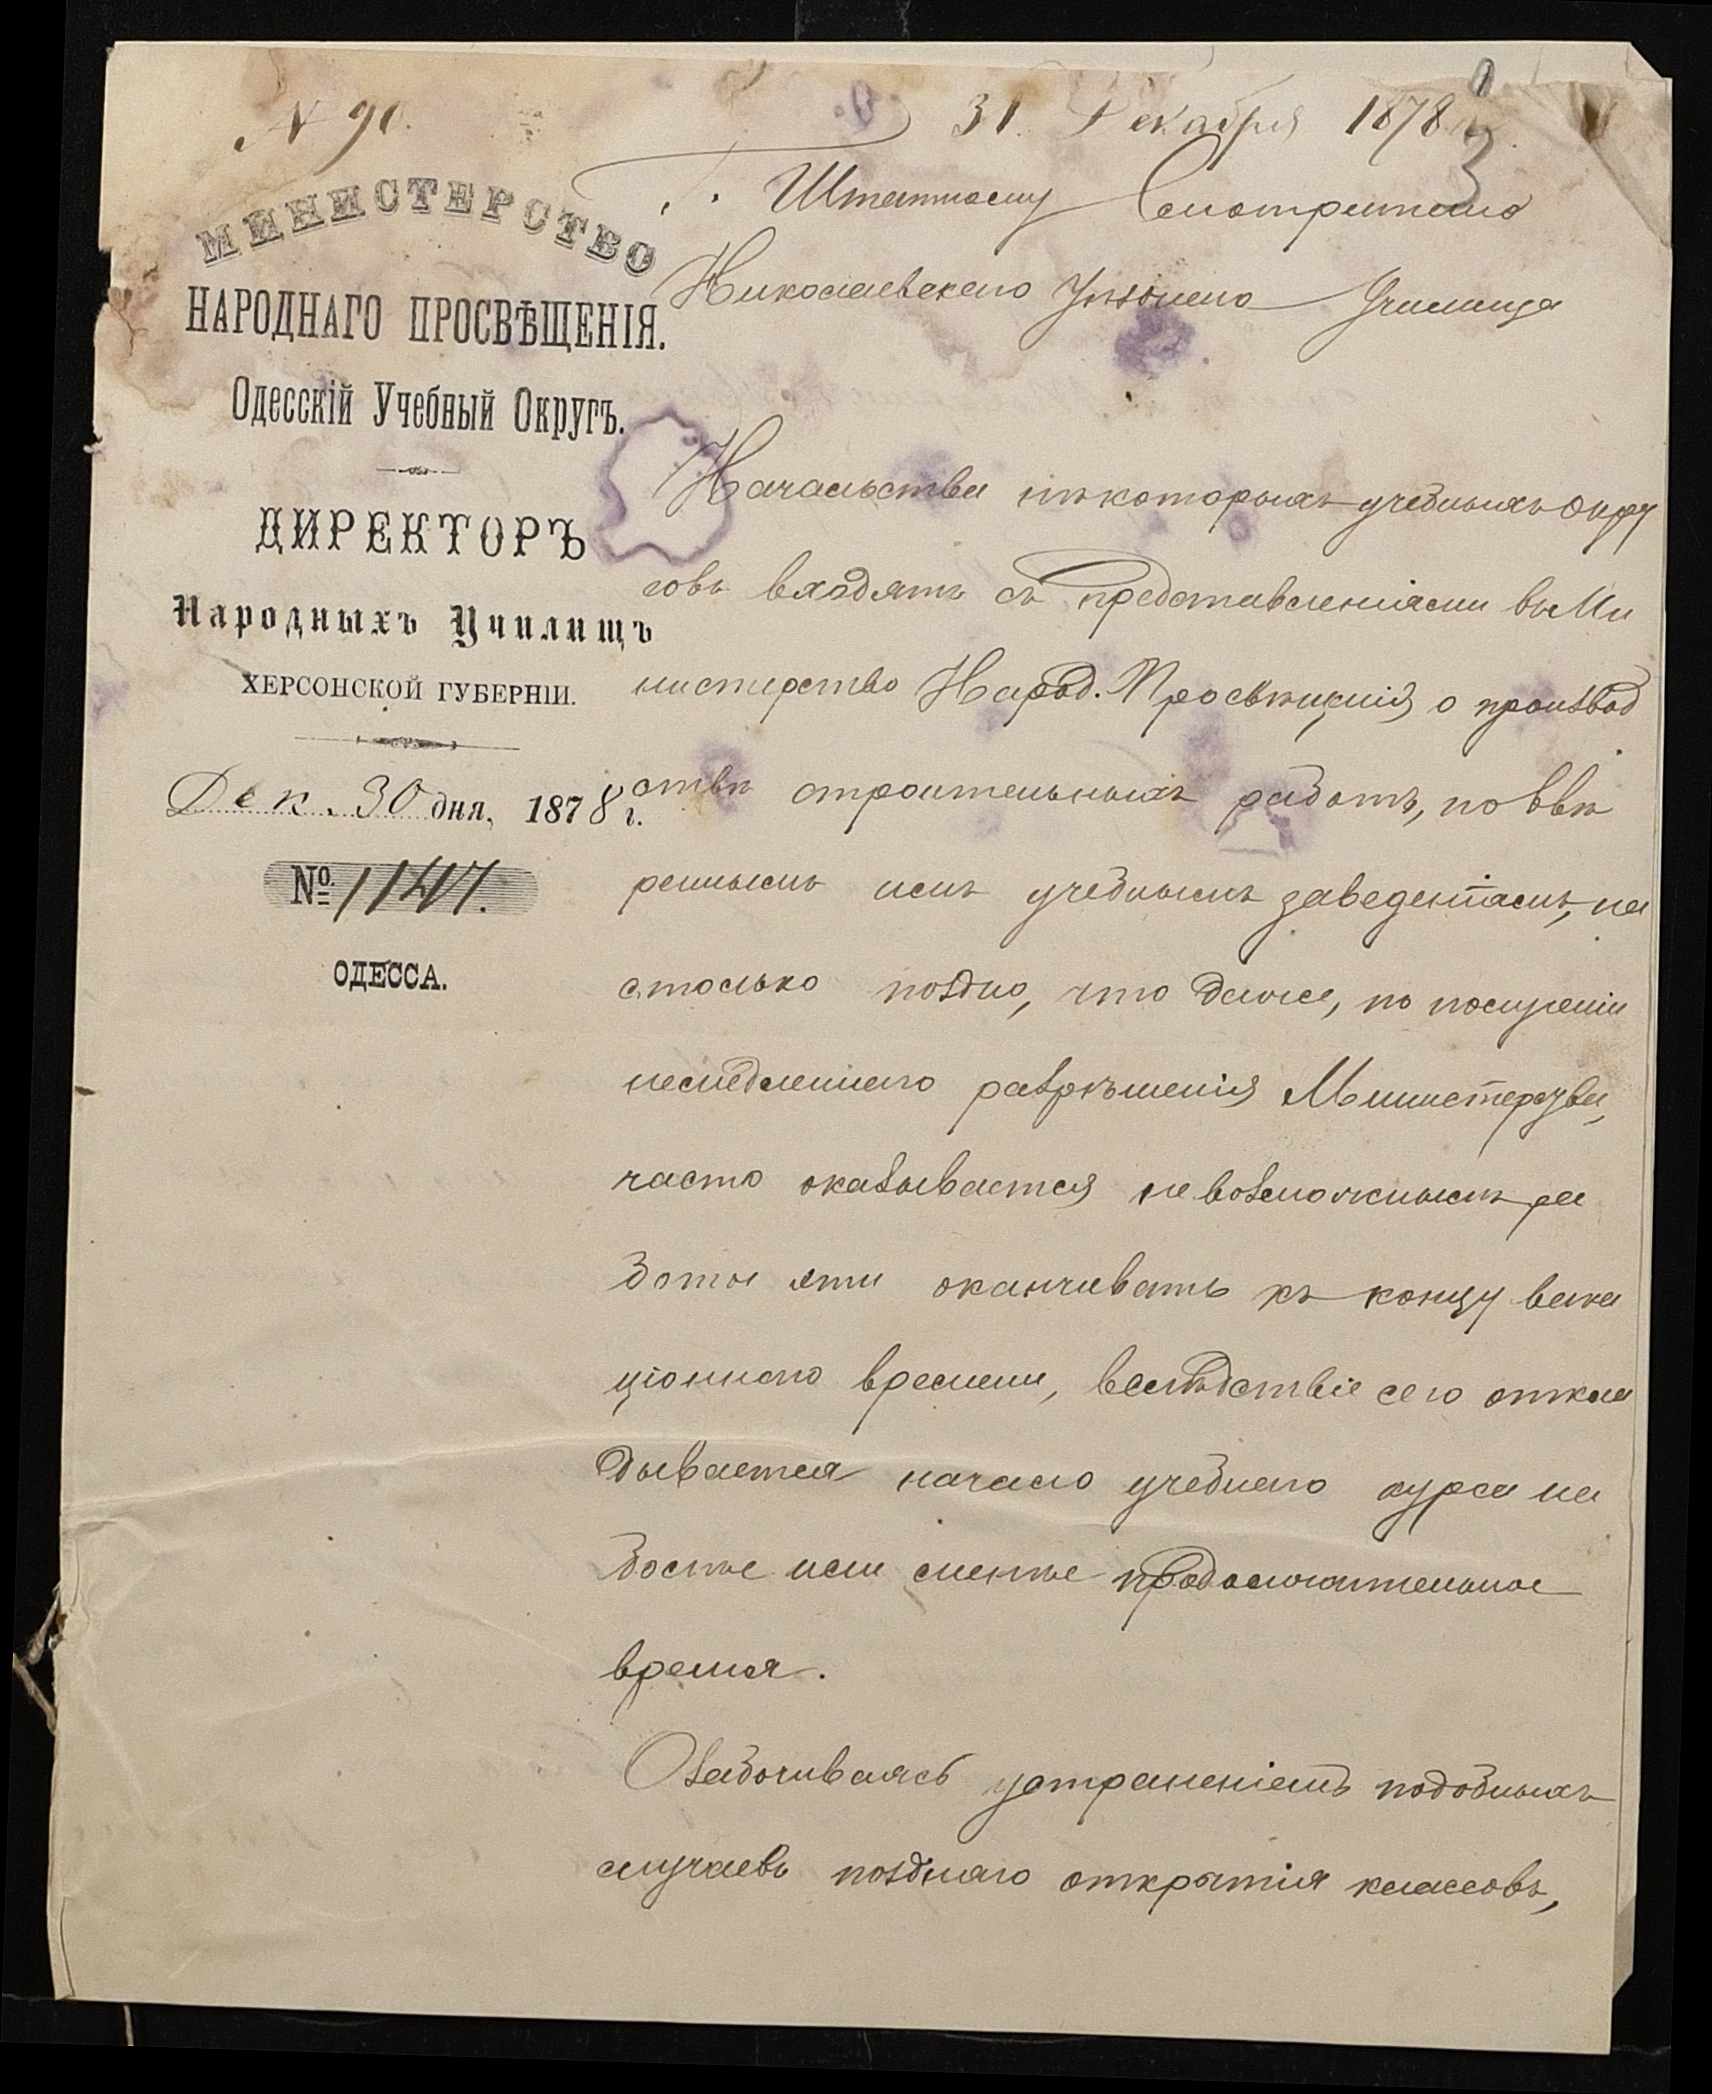 N 90.
31 Декабря 1878
3
МИНИСТЕРСТВО
НАРОДНАГО ПРОСВѢЩЕНІЯ.
Одесскій Учебный Округъ.
ДИРЕКТОРЪ
Народныхъ Училищъ
ХЕРСОНСКОЙ ГУБЕРНІИ.
Дек. 30 дня, 1878 г.
№ 1147.
ОДЕССА.
Г. Штатному Смотрителю
Николаевскаго Уѣзднаго Училища
Начальства нѣкоторыхъ учебныхъ Окру
говъ входятъ съ представленіями въ Ми
нистерство Народ. Просвѣщенія о производ
ствѣ строительныхъ работъ, по ввѣ
реннымъ имъ учебнымъ заведеніямъ, на
столько поздно, что даже, по полученіи
немедленнаго разрѣшенія Министерства,
часто оказывается невозможнымъ ра
боты эти оканчивать къ концу вака
ціоннаго времени, вслѣдствіе сего откла
дывается начало учебнаго курса на
болѣе или менѣе продолжительное
время.
Озабочиваясь устраненіемъ подобныхъ
случаевъ поздняго открытія классовъ,